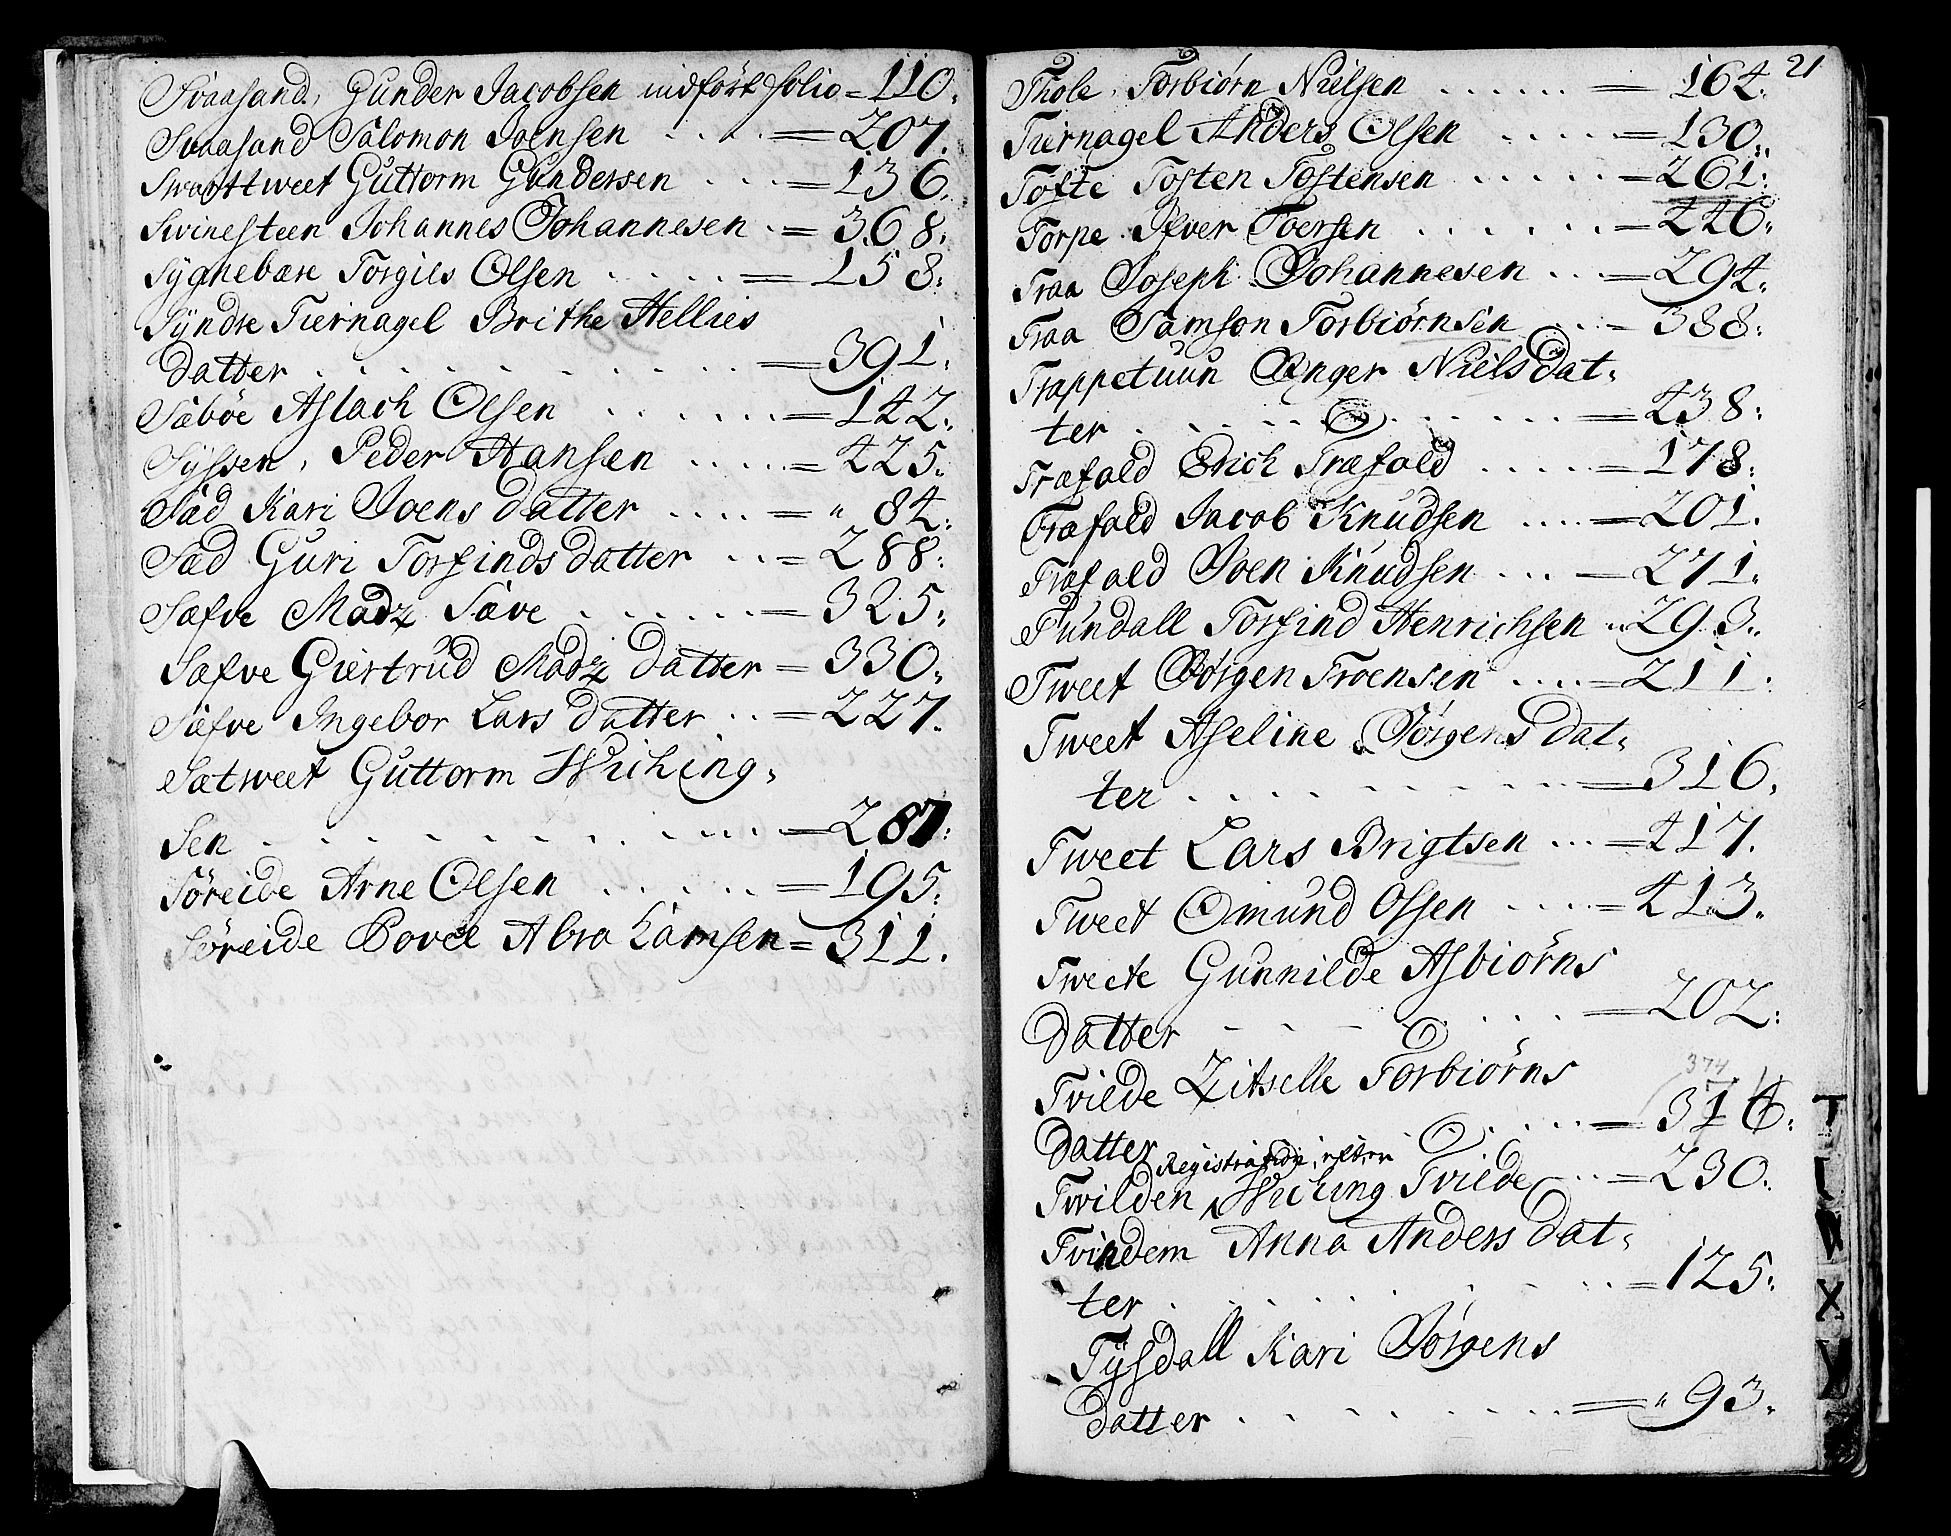 Svaasand, Gunder Jacobsen indfört folio = 110.
Svaasand Salomon Joensen . . . . = 207.
Swarttweet Guttorm Gundersen . . . = 136.
Svinesteen Johannes Johannesen . = 368.
Sygnebære Torgils Olsen . . . . . = 158.
Syndre Tiernagel Brithe Hellies
datter . . . . . . . . . . = 391.
Sæböe Aslach Olsen . . . . . . = 142.
Syssen, Peder Hansen . . . . . = 425.
Sæd Kari Joens datter . . . . = " 84.
Sæd Guri Torfinds datter . . = 288.
Sæfve Madz Sæve . . . . . . = 325.
Sæfve Giertrud Madz datter = 330.
Sæfve Ingebor Lars datter . . = 227.
Sætweet Guttorm Wiching,
Sen . . . . . . . . . . . = 287.
Söreide Arne Olsen . . . . . = 195.
Söreide Povel Abrahamsen = 311.
21
Thole, Torbiörn Nielsen . . . . . . = 164.
Tiernagel Anders Olsen . . . . . = 130.
Tofte Tosten Tostensen . . . . . = 261.
Torpe Ifver Toersen . . . . . . = 226.
Traa Joseph Johannesen . . . = 294.
Traa Samson Torbiörnsen . . . = 388.
Trappetuun Anger Niels dat,
ter . . . . . . . . . . = 438.
Træfald Erich Træfald . . . . . = 178.
Træfald Jacob Knudsen . . . . = 201.
Træfald Joen Knudsen . . . = 271.
Tundall Torfind Henrichsen . . 293.
Tweet Jörgen Troensen . . . . = 211.
Tweet Aseline Jörgens dat,
ter . . . . . . . . . . = 316.
Tweet Lars Brigtsen . . . = 417.
Tweet Omund Ossen . . . . = 413.
Tweete Gunnilde Asbiörns
datter . . . . . . . = 202.
374
Tvilde Zitselle Torbiörns
datter . . . . . . . = 374.
Registra efter
Tvilden Wiching Tvilde . . = 230.
Tvindem Anna Anders dat,
ter . . . . . . . . . = 125.
Tysdall Kari Jörgens
datter . . . . . . . . = " 93.
T
U
W
X
Y